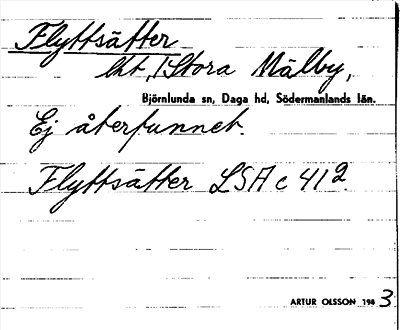 Flyttsätter
lht, /Stora Mälby,
Björnlunda sn, Daga hd, Södermanlands län.
Ej återfunnet.
Flyttsätter LSA c 41 2
ARTUR OLSSON 198 3